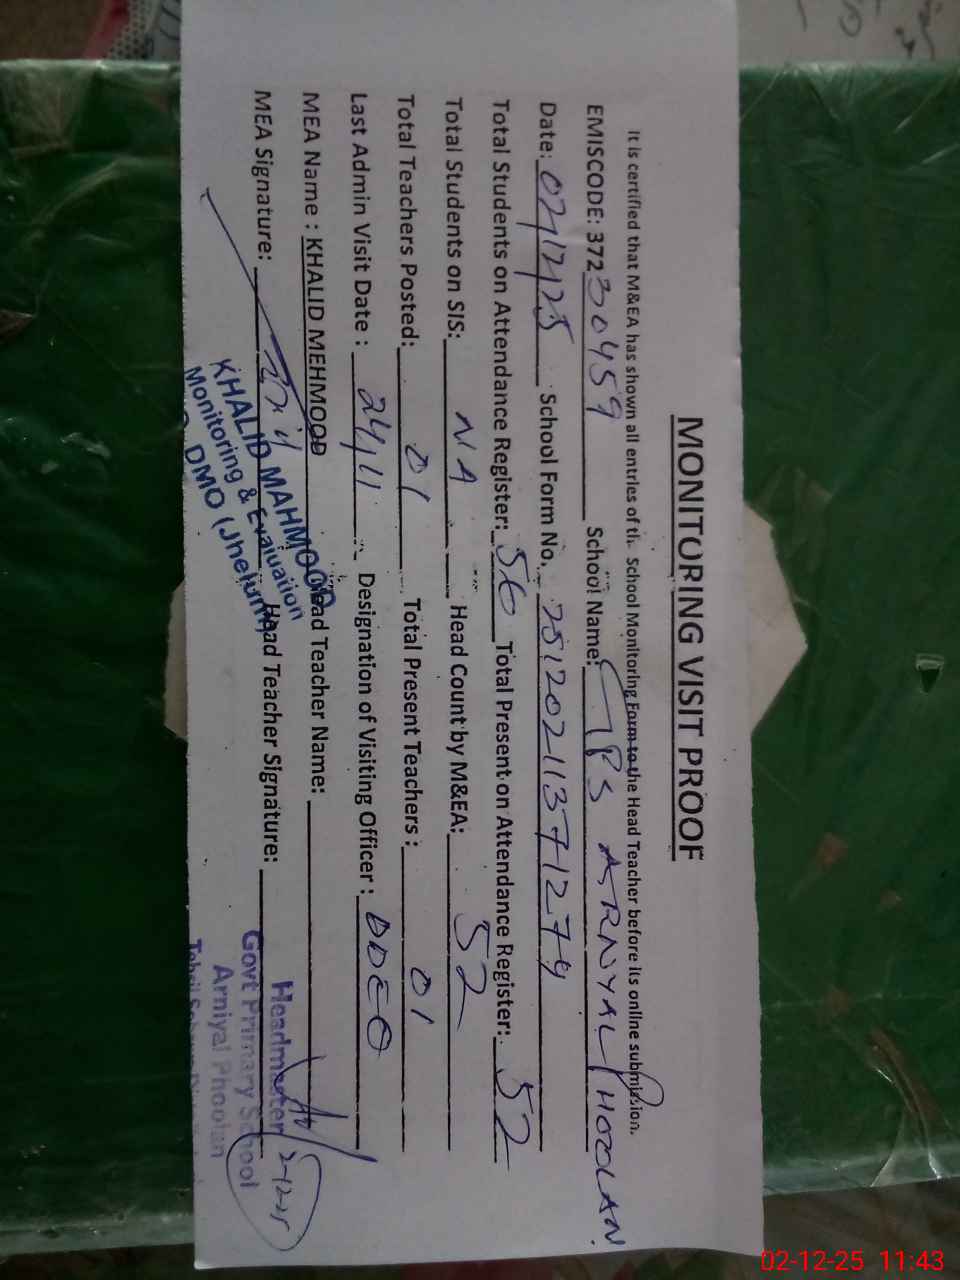 MONITORING VISIT PROOF
It is certified that M&EA has shown all entries of the School Monitoring Form to the Head Teacher before its online submission.
EMISCODE: 37230459 School Name: GPS ARNYAL PHOOLAN
Date: 02/12/25 School Form No. 25120211371274
Total Students on Attendance Register: 56 Total Present on Attendance Register: 52
Total Students on SIS: NA Head Count by M&EA: 52
Total Teachers Posted: 01 Total Present Teachers: 01
Last Admin Visit Date: 24/11 Designation of Visiting Officer: DDEO
MEA Name: KHALID MEHMOOD Head Teacher Name:
MEA Signature: Head Teacher Signature:
KHALID MAHMOOD
Monitoring & Evaluation
DMO (Jhelum)
Headmaster 2-12-25
Govt Primary School
Arniyal Phoolan
02-12-25 11:43